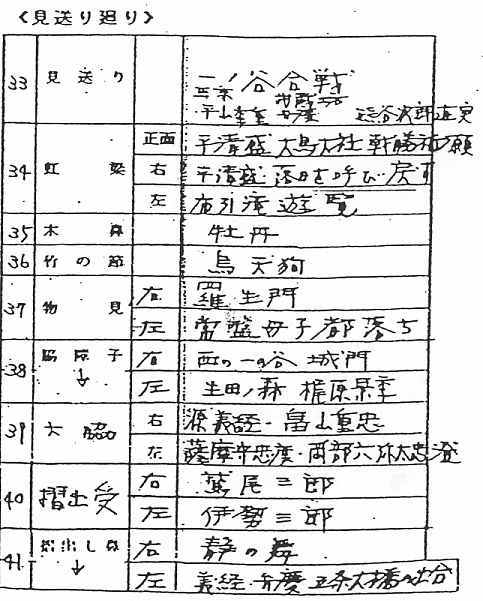 《見送り廻り》
33 見送り 一ノ谷合戦
熊谷次郎直実
34 虹梁 正面 平清盛 大鳥大社 戦勝祈願
右 平清盛 落日を呼び戻す
左 布引滝 遊覧
35 木鼻 牡丹
36 竹の節 烏天狗
37 物見 右 羅生門
左 常盤母子都落ち
38 脇障子 ↓ 右 西の一の谷 城門
左 生田ノ森 梶原景季
39 大脇 右 源義経・畠山重忠
左 薩摩守忠度・岡部六弥太忠澄
40 摺出受 右 鷲尾三郎
左 伊勢三郎
41 摺出し鼻 ↓ 右 静の舞
左 義経・弁慶 五条大橋の出合